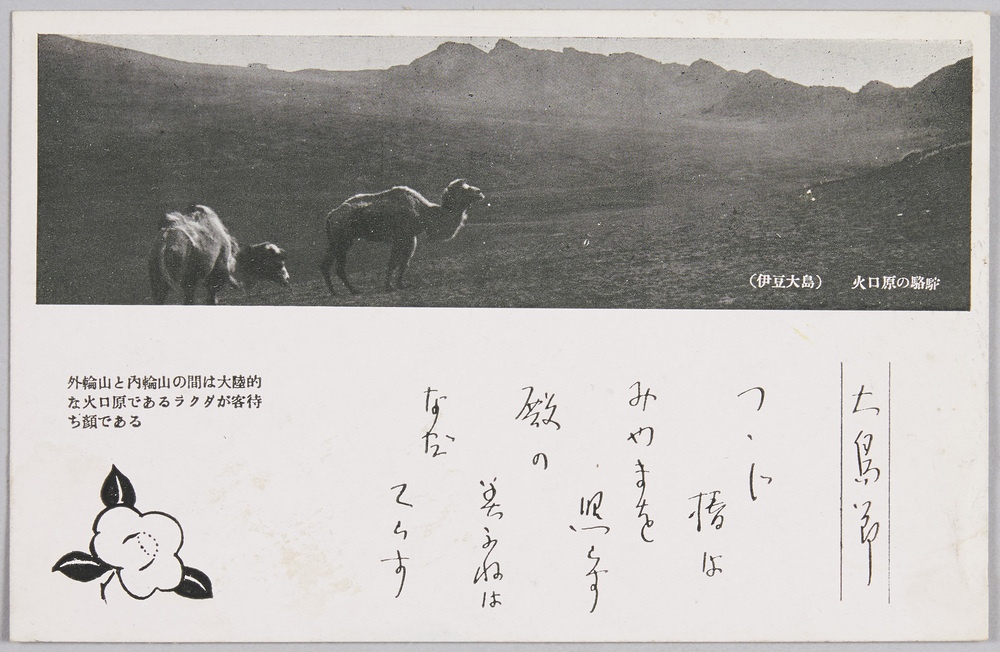 （伊豆大島）　火口原の駱駝
外輪山と内輪山の間は大陸的
な火口原であるラクダが客待
ち顔である
大島節
つゝじ
椿は
みやまを
照らす
殿の
美ふねは
なだ
てらす